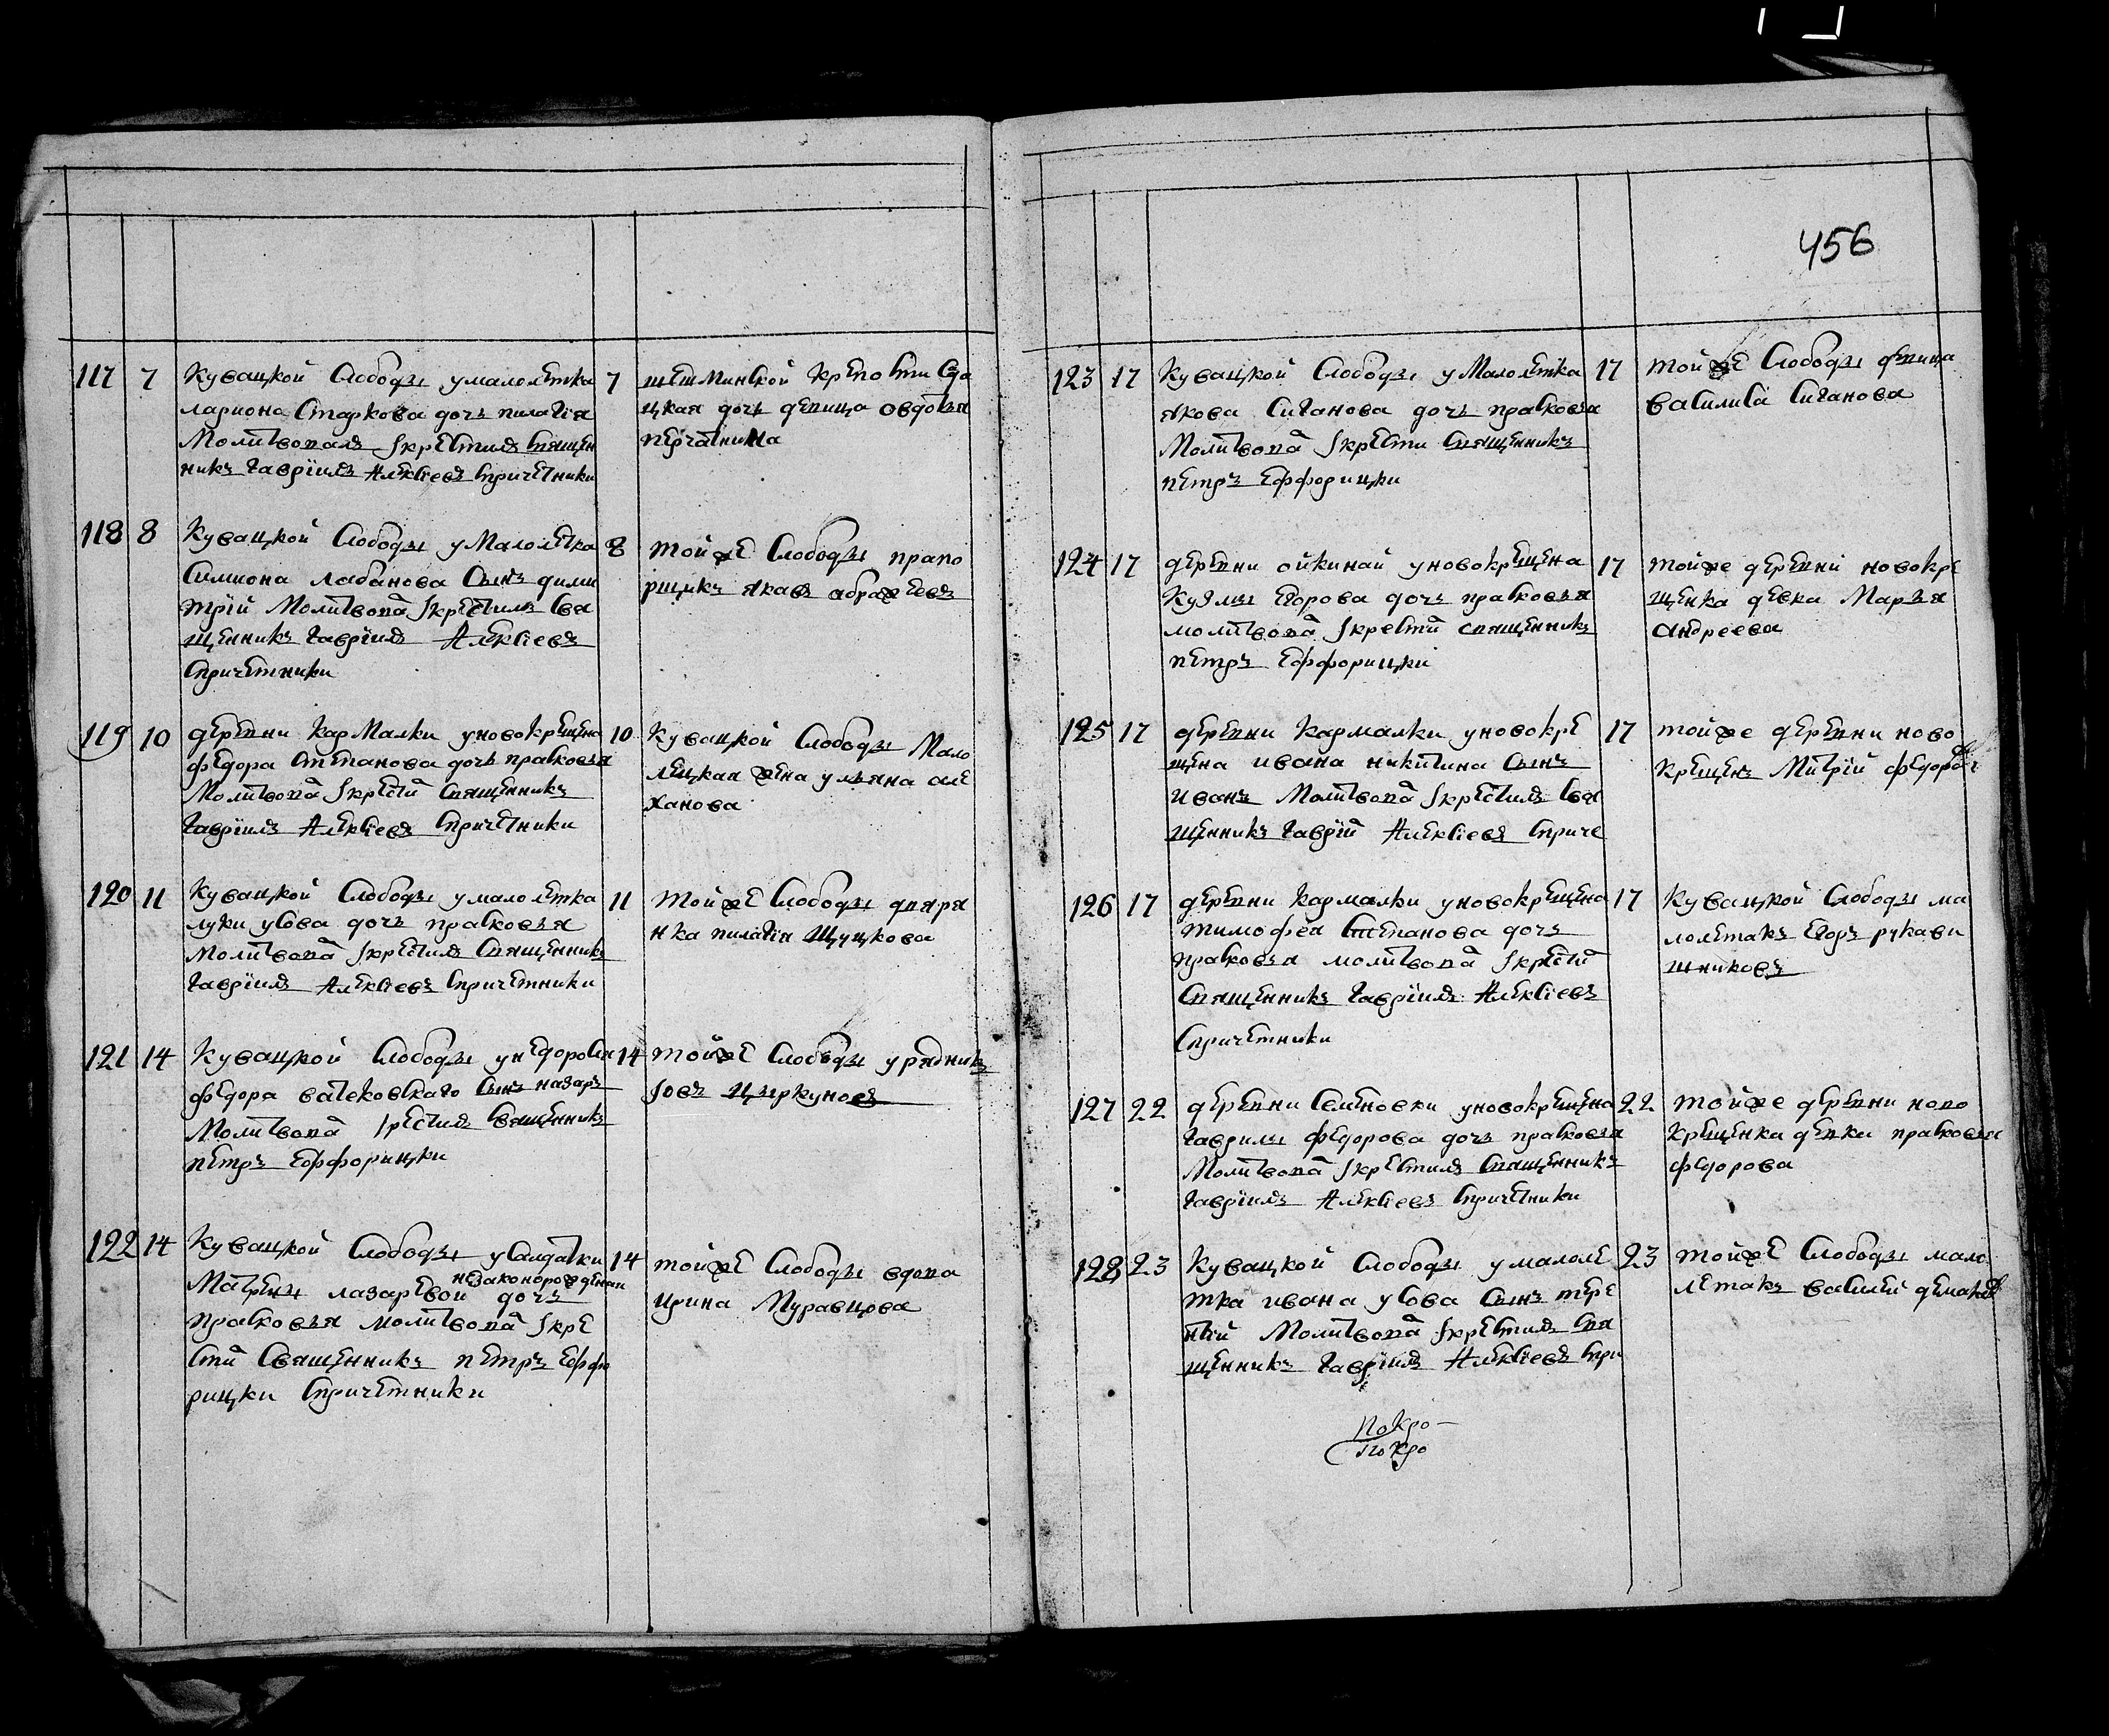 456
117 7 Кувацкой Слободы у малолетка
лариона Старкова дочь пилагiя
Молитвовалъ Iкрестилъ Священ
никъ Гаврiилъ Алексiевъ Спричетники
7 шешминской крепости Солда
цкая дочь девица овдотья
118 8 Кувацкой Слободы у Малолетка
Симиона лабанова Сынъ дими
трiй Молитвова Iкрестилъ Свя
щенникъ Гаврiилъ Алексiевъ
Спричетники
8 той же Слободы прапо
рщикъ якавъ
119 10 деревни кар Малки у новокрещена
федора Степанова дочь прасковья
Молитвова Iкрести Священникъ
Гаврiилъ Алексiевъ Спричетники
10 Кувацкой Слободы Мало
лецкая жена ульяна але
ханова
120 11 Кувацкой Слободы у малолетка
луки усова дочь прасковья
Молитвова Iкрестилъ Священникъ
Гаврiилъ Алексiевъ Спричетники
11 той же Слободы дворя
нка пилагiя Щуцкова
121 14 Кувацкой Слободы
федора Сынъ назаръ
Молитвова Iрестилъ Священникъ
петръ Еффорицки
14 той же Слободы урядникъ
Iовъ Цыркуновъ
122 14 Кувацкой Слободы у Салдатки
незаконорожденая
Матрены лазаревой дочь
прасковья молитвова Iкре
сти Священникъ петръ Еффо
рицки Спричетники
14 той же Слободы вдова
ирина Муравцова
123 17 Кувацкой Слободы у Малолетка
якова Сиганова дочь прасковья
Молитвова Iкрести Священникъ
петръ Еффорицки
17 той же Слободы девица
василиса Сиганова
124 17 деревни ойкинай у новокрещена
Кузмы Егорова дочь прасковья
молитвова Iкрести священникъ
петръ Еффорицки
17 той же деревни новокре
щенка девка Марья
андреева
125 17 деревни кармалки у новокре
щена ивана никитина Сынъ
иванъ Молитвова Iкрестилъ Свя
щенникъ Гаврiи Алексiевъ Сприче
17 той же деревни ново
крещенъ Митрiй федоровъ
126 17 деревни кармалки у новокрещена
тимофея Степанова дочь
прасковья молитвова Iкрести
Священникъ Гаврiилъ Алексiевъ
Спричетники
17 Кувацкой Слободы ма
лолетакъ Егоръ рукави
шниковъ
127 22 деревни Семеновки у новокрещена
Гаврилы федорова дочь прасковья
Молитвова Iкрестилъ Священникъ
Гаврiилъ Алексiевъ Спричетники
22 той же деревни ново
крещенка девки прасковья
федорова
128 23 Кувацкой Слободы у малоле
тка ивана усова Сынъ тере
нтiи Молитвова Iкрестилъ Свя
щенникъ Гаврiилъ Алексiевъ Спри
23 той же Слободы мало
летакъ василей
Покро
Покро